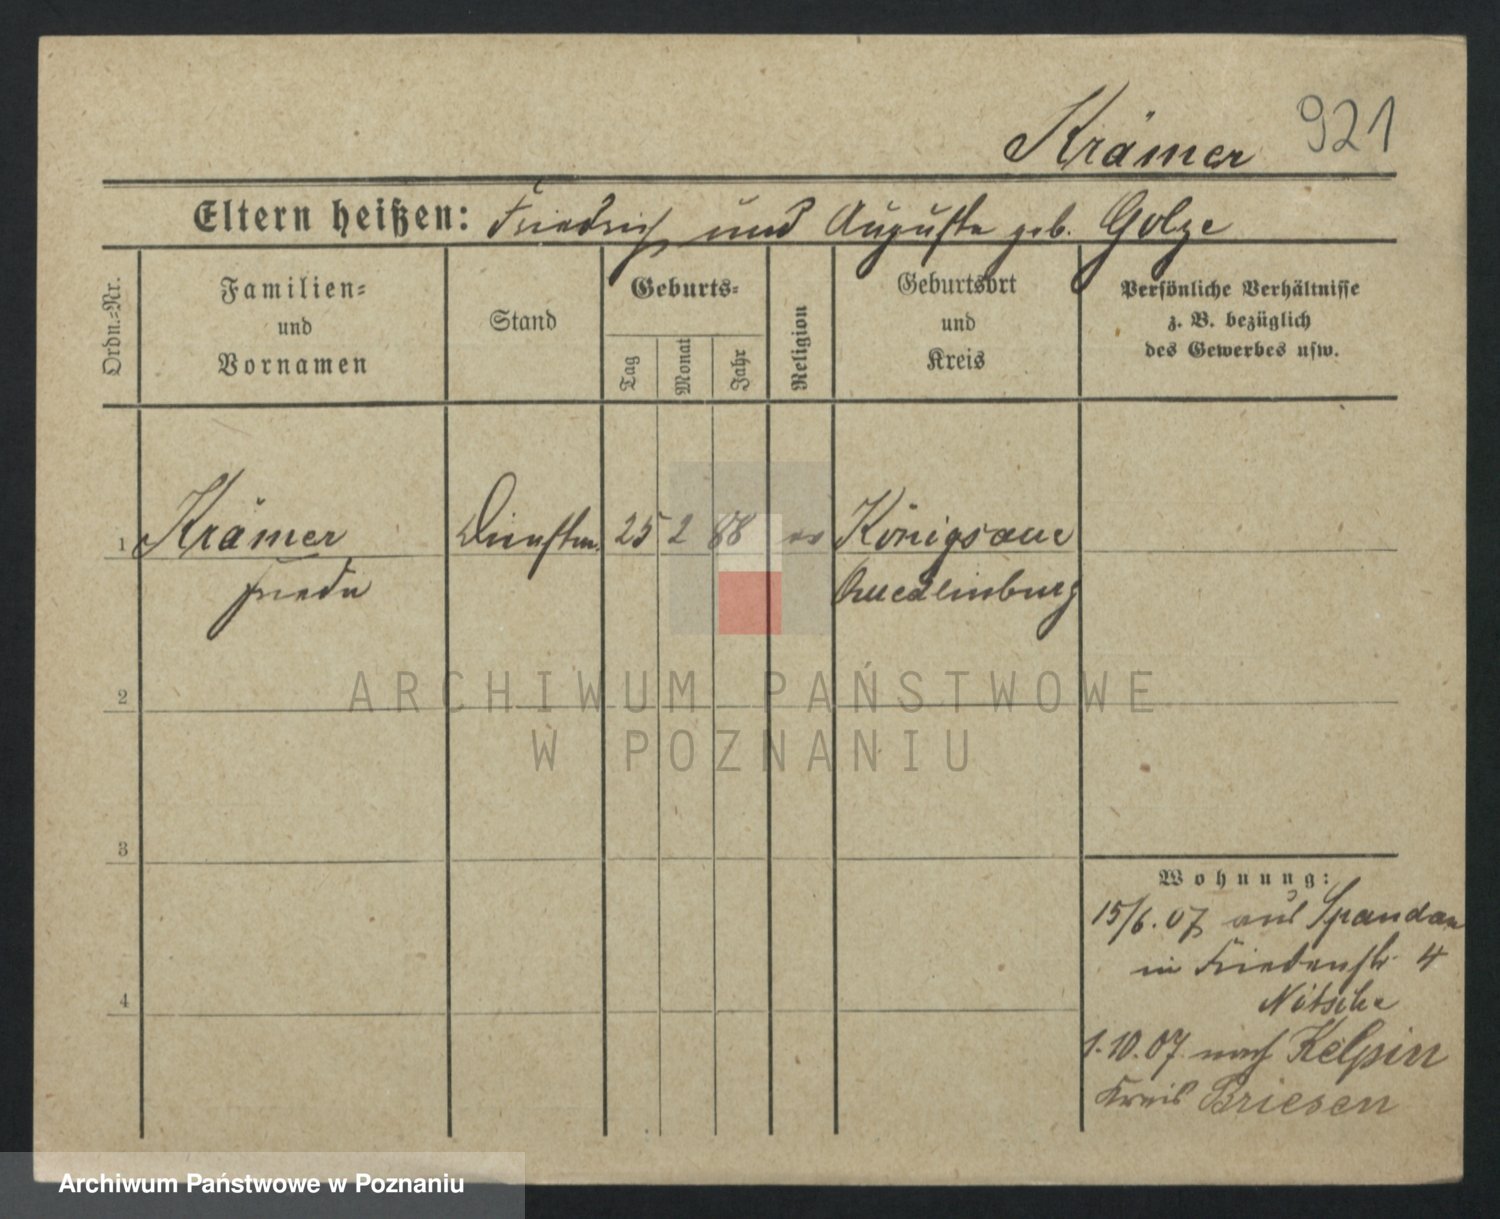 Krämer 921
Eltern heißen: Friedrich und Auguste geb. Golze
Ordn.=Nr.
Familien=
und
Vornamen
Stand
Geburts=
Tag
Monat
Jahr
Religion
Geburtsort
und
Kreis
Persönliche Verhältnisse
z. B. bezüglich
des Gewerbes usw.
1 Krämer Dienstm. 25 2 88 ev Königsaue
Frieda Quedlinburg
2
3
4
Wohnung:
15/6.07 aus Spandau
in Friedenstr. 4
Nitsche
1.10.07. nach Kelpin
Kreis Briesen
ARCHIWUM PAŃSTWOWE
W POZNANIU
Archiwum Państwowe w Poznaniu